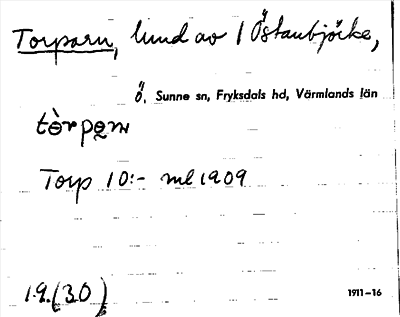 Torparn, lund av 1 Östanbjörke,
Ö, Sunne sn, Fryksdals hd, Värmlands län
tòrpan
Torp 10:- ml 1909
19.(30)
1911-16